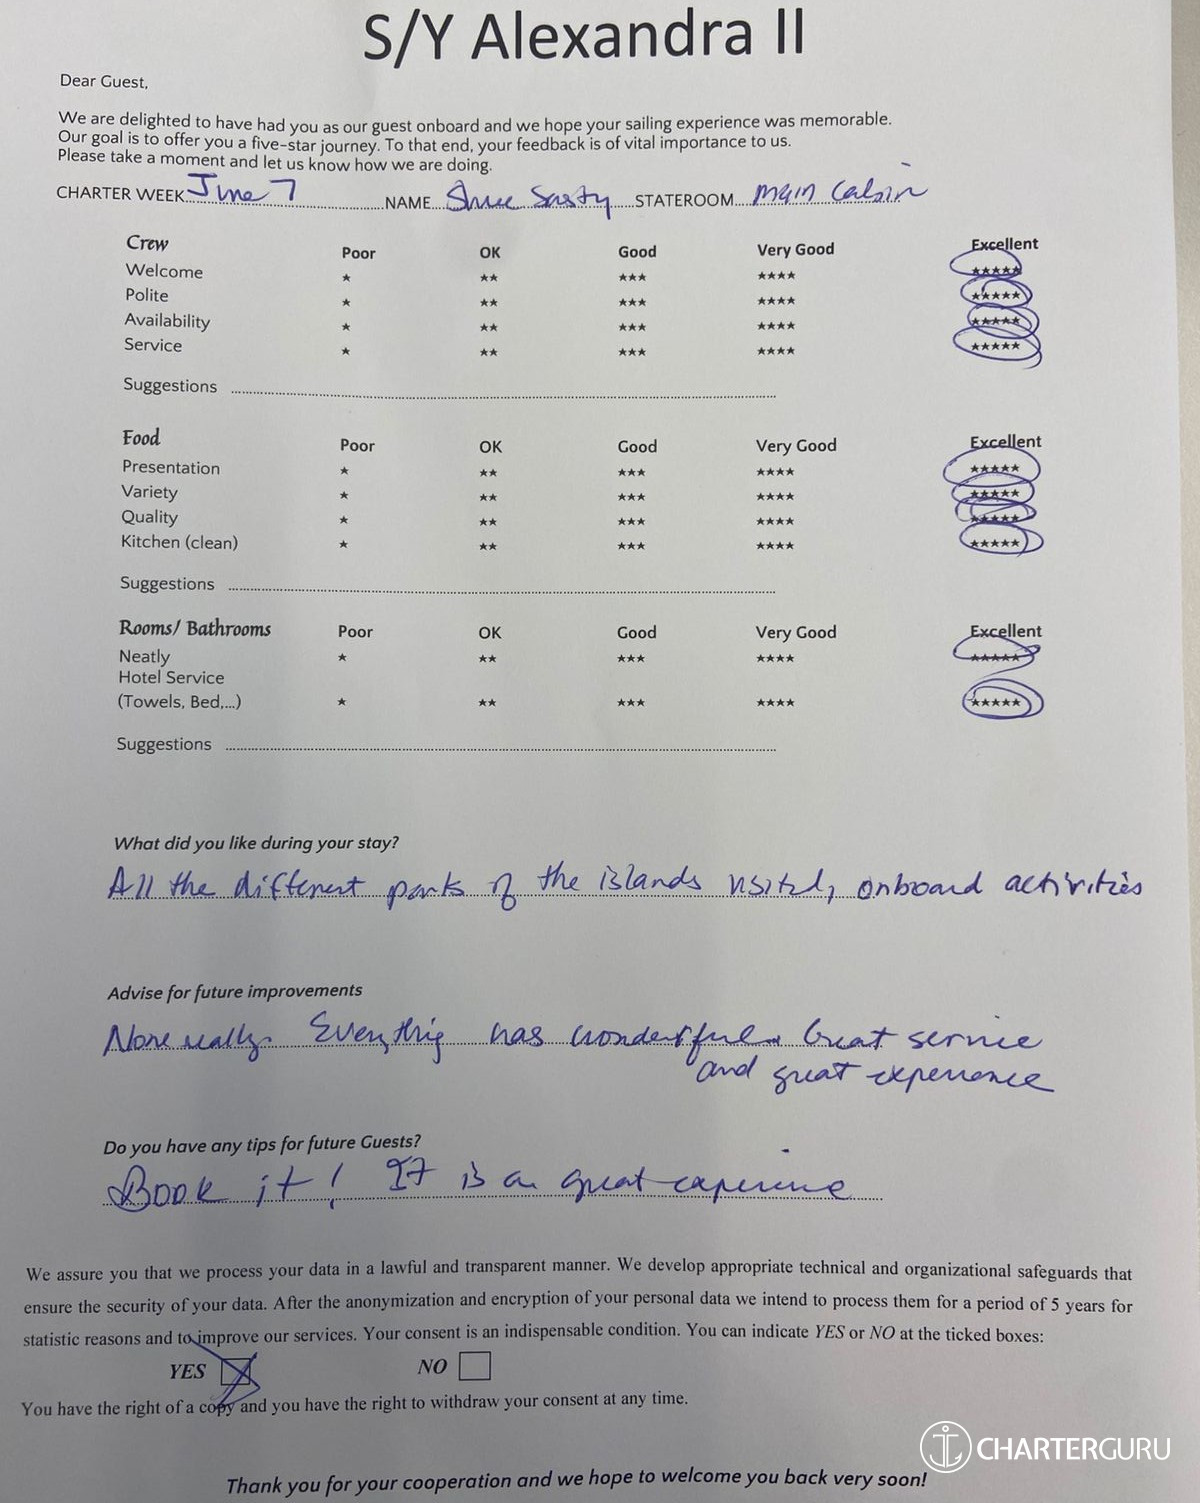 S/Y Alexandra II
Dear Guest,
We are delighted to have had you as our guest onboard and we hope your sailing experience was memorable.
Our goal is to offer you a five-star journey. To that end, your feedback is of vital importance to us.
Please take a moment and let us know how we are doing.
CHARTER WEEK June 7 NAME STATEROOM Main Cabin
Crew Poor OK Good Very Good Excellent
Welcome ★ ★★ ★★★ ★★★★ ★★★★★
Polite ★ ★★ ★★★ ★★★★ ★★★★★
Availability ★ ★★ ★★★ ★★★★ ★★★★★
Service ★ ★★ ★★★ ★★★★ ★★★★★
Suggestions
Food Poor OK Good Very Good Excellent
Presentation ★ ★★ ★★★ ★★★★ ★★★★★
Variety ★ ★★ ★★★ ★★★★ ★★★★★
Quality ★ ★★ ★★★ ★★★★ ★★★★★
Kitchen (clean) ★ ★★ ★★★ ★★★★ ★★★★★
Suggestions
Rooms/ Bathrooms Poor OK Good Very Good Excellent
Neatly ★ ★★ ★★★ ★★★★ ★★★★★
Hotel Service
(Towels, Bed,...) ★ ★★ ★★★ ★★★★ ★★★★★
Suggestions
What did you like during your stay?
All the different parts of the islands visited, onboard activities
Advise for future improvements
None really. Everything was wonderful. Great service
and great experience
Do you have any tips for future Guests?
Book it! It is a great experience
We assure you that we process your data in a lawful and transparent manner. We develop appropriate technical and organizational safeguards that
ensure the security of your data. After the anonymization and encryption of your personal data we intend to process them for a period of 5 years for
statistic reasons and to improve our services. Your consent is an indispensable condition. You can indicate YES or NO at the ticked boxes:
YES NO
You have the right of a copy and you have the right to withdraw your consent at any time.
CHARTERGURU
Thank you for your cooperation and we hope to welcome you back very soon!